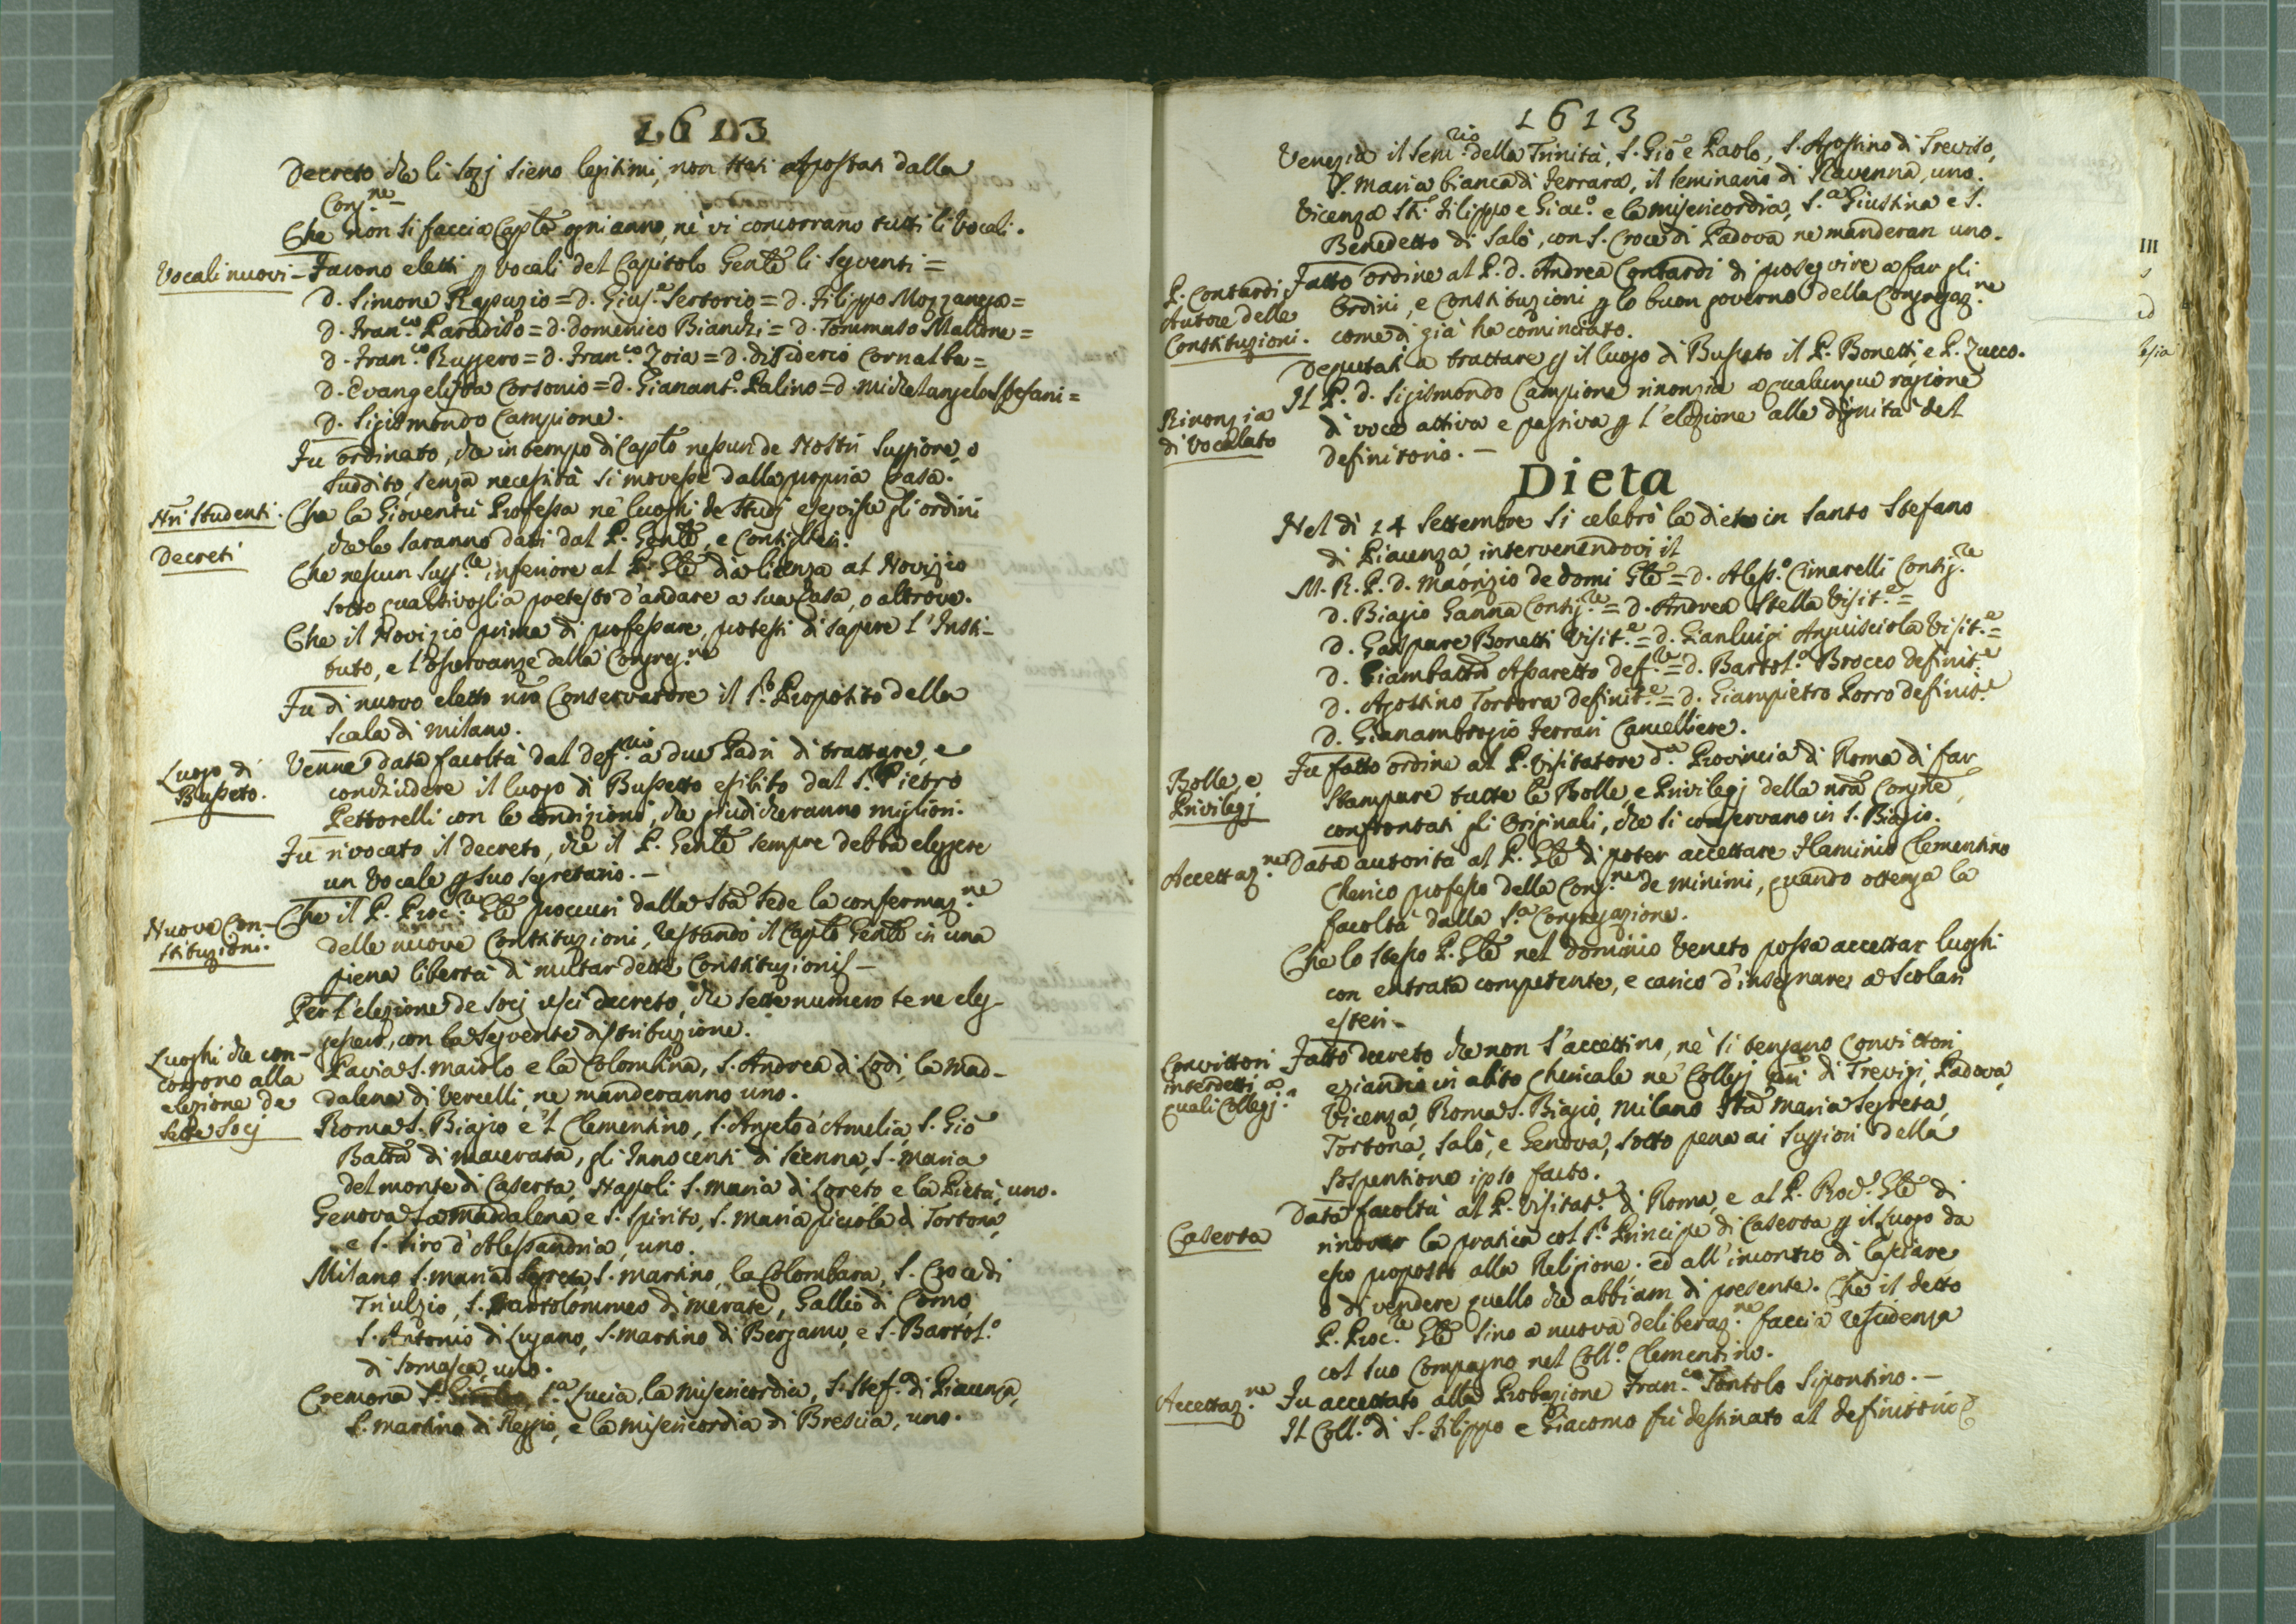 1613
Decreto che li Socj sieno legitimi, non stati Apostati dalla
Cong.ne
Che non si faccia Caplo ogni anno, nè vi concorrano tutti li Vocali.
Vocali nuovi – Furono eletti p vocali del Capitolo Genle li seguenti =
D. Simone Rapuzio = D. Gius.e Sertorio = D. Filippo Mozzanega =
D. Fran.co Paradiso = D. Domenico Bianchi = D. Tommaso Malone =
D. Fran.co Ruggero = D. Fran.co Zoia = D. Disiderio Cornalba =
D. Evangelista Corsonio = D. Gianant.o Palino = D. Michelangelo Stefani =
D. Sigismondo Campione.
Fu ordinato, che in tempo di Caplo nessun de Nostri Suppiore, o
suddito, senza necessità si movesse dalla propria Casa.
Nri Studenti. Che la Gioventù Professa nè luoghi de Studj eseguisse gli ordini
che le saranno dati dal P. Genle, e Consiglieri.
Decreti
Che nessun Supp.re inferiore al P. Gle dia licenza al Novizio
sotto qualsivoglia pretesto d'andare a sua Casa, o altrove.
Che il Novizio prima di professare, protesti di sapere l'Insti-
tuto, e l'osservanze della Congreg.ne
Fu di nuovo eletto nro Conservatore il S.r Proposito della
Scala di Milano.
Luogo di
Busseto.
Venne data facoltà dal def.rio a due Padri di trattare, e
conchiudere il luogo di Bussetto esibito dal S.r Pietro
Pettorelli con le condizioni, che giudicheranno migliori.
Fu rivocato il decreto, che il P. Genle sempre debba eleggere
un Vocale p suo segretario. –
Nuove Con-
stituzioni.
Che il P. Proc.re Gle procuri dalla Sta Sede la confermaz.ne
delle nuove Constituzioni, restando il Caplo Genle in una
piena libertà di mutar dette Constituzioni –
Per l'elezione de Socj uscì decreto, che sette numero se ne eleg-
gessero, con la seguente distribuzione.
Luoghi che con-
corrono alla
elezione de
sette Socj
Pavia S. Maiolo e la Colombina, S. Andrea di Lodi, la Mad-
dalena di Vercelli, ne manderanno uno.
Roma S. Biagio e 'l Clementino, S. Angelo d'Amelia, S. Gio
Batta di Macerata, gli Innocenti di Sienna, S. Maria
del monte di Caserta, Napoli S. Maria di Loreto e la Pietà, uno.
Genova La Maddalena e S. Spirito, S. Maria piccola di Tortona,
e S. Siro d'Alessandria, uno.
Milano S. Maria Segreta, S. Martino, la Colombara, S. Croce di
Triulzio, S. Bartolommeo di Merate, Gallio di Como,
S. Antonio di Lugano, S. Martino di Bergamo, e S. Bartol.o
di Somasca, uno.
Cremona S.a Lucia, la Misericordia, S. Stef.o di Piacenza,
S. Martino di Reggio, e la Misericordia di Brescia, uno.
1613
Venezia il Sem.rio della Trinità, S. Gio e Paolo, S. Agostino di Treviso,
S. Maria bianca di Ferrara, il seminario di Ravenna, uno.
Vicenza Sti Filippo e Giac.o e la Misericordia, S.a Giustina e S.
Benedetto di Salò, con S. Croce di Padova ne manderan uno.
P. Contardi
Autore delle
Constituzioni.
Fatto ordine al P. D. Andrea Contardi di proseguire a far gli
Ordini, e Constituzioni p lo buon governo della Congregaz.ne
come di già ha cominciato.
Deputati a trattare p il luogo di Busseto il P. Bonetti, e P. Zucco.
Rinonzia
di Vocalato
Il P. D. Sigismondo Campione rinonzia a qualunque ragione
di voce attiva e passiva p l'elezione alle dignità del
definitorio. –
Dieta
Nel dì 14 Settembre si celebrò la dieta in Santo Stefano
di Piacenza, intervenendovi il
M. R. P. D. Maorizio de Domi Gle = D. Aless.o Cimarelli Consig.re
D. Biagio Ganna Consig.re = D. Andrea Stella Visit.e =
D. Gaspare Bonetti Visit.e = D. Gianluigi Anguisciola Visit.e =
D. Giambatta Assaretto def.re = D. Bartol.o Brocco definit.e
D. Agostino Tortora definit.e = D. Giampietro Porro definit.e
D. Gianambrogio Ferrari Cancelliere.
Bolle, e
Privilegj
Fu fatto ordine al P. Visitatore d.a Provincia di Roma di far
stampare tutte le Bolle, e Privilegj della nra Congne,
confrontati gli Originali, che si conservano in S. Biagio.
Accettaz.ne Data autorità al P. Gle di poter accettare Flaminio Clementino
Cherico professo della Cong.ne de minimi, quando ottenga la
facoltà dalla S.a Congregazione.
Che lo stesso P. Gle nel dominio Veneto possa accettar luoghi
con entrata competente, e carico d'insegnare a Scolari
esteri.
Convittori
interdetti a
quali Collegj.
Fatto decreto che non s'accettino, nè si tengano Convittori
eziandio in abito Chericale nè Collegj nri di Trevigi, Padova,
Vicenza, Roma S. Biagio, Milano Sta Maria Segreta,
Tortona, Salò, e Genova, sotto pena ai Suppiori della
sospensione ipso facto.
Caserta
Data facoltà al P. Visitat.e di Roma, e al P. Proc.e Gle di
rinovar la pratica col S.r Principe di Caserta p il luogo da
esso proposto alla Religione. ed all'incontro di lasciare,
o di vendere quello che abbiam di presente. Che il detto
P. Proc.re Gle sino a nuova deliberaz.ne faccia residenza
col suo Compagno nel Coll.o Clementino.
Accettaz.ne Fu accettato alla Probazione Fran.co Tontolo Sipontino. –
Il Coll.o di S. Filippo e Giacomo fù destinato al definitorio
III